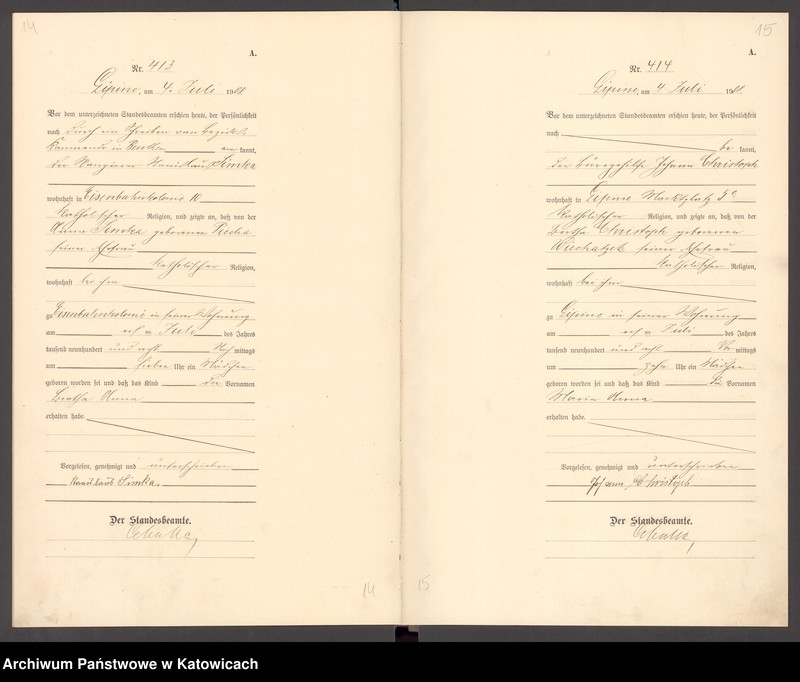 14
A.
Nr. 413
Lipine, am 4. Juli 1908.
Vor dem unterzeichneten Standesbeamten erschien heute, der Persönlichkeit
nach durch ein Schreiben vom Bezirks
Kommando in Beuthen kannt,
der Stanislaus Simka
wohnhaft in Eisenbahnkolonie 10
katholischer Religion, und zeigte an, daß von der
Anna Simka geborenen Piecha
seiner Ehefrau
katholischer Religion,
wohnhaft bei ihm
zu Eisenbahnkolonie in seiner Wohnung
am Juli des Jahres
tausend neunhundert und acht Nachmittags
um sieben Uhr ein Mädchen
geboren worden sei und daß das Kind die Vornamen
Bertha Anna
erhalten habe.
Vorgelesen, genehmigt und unterschrieben
Stanislaus Simka.
Der Standesbeamte.
14
15
A.
Nr. 414
Lipine, am 4 Juli 1908.
Vor dem unterzeichneten Standesbeamten erschien heute, der Persönlichkeit
nach
be kannt,
der Bürogehilfe Johann Christoph
wohnhaft in Lipine Marktplatz 5a
katholischer Religion, und zeigte an, daß von der
Bertha Christoph geborenen
Wiechatzek seiner Ehefrau
katholischer Religion,
wohnhaft bei ihm
zu Lipine in seiner Wohnung
am Juli des Jahres
tausend neunhundert und acht Vormittags
um zehn Uhr ein Mädchen
geboren worden sei und daß das Kind die Vornamen
Maria Anna
erhalten habe.
Vorgelesen, genehmigt und unterschrieben
Johann Christoph
Der Standesbeamte.
15
Archiwum Państwowe w Katowicach